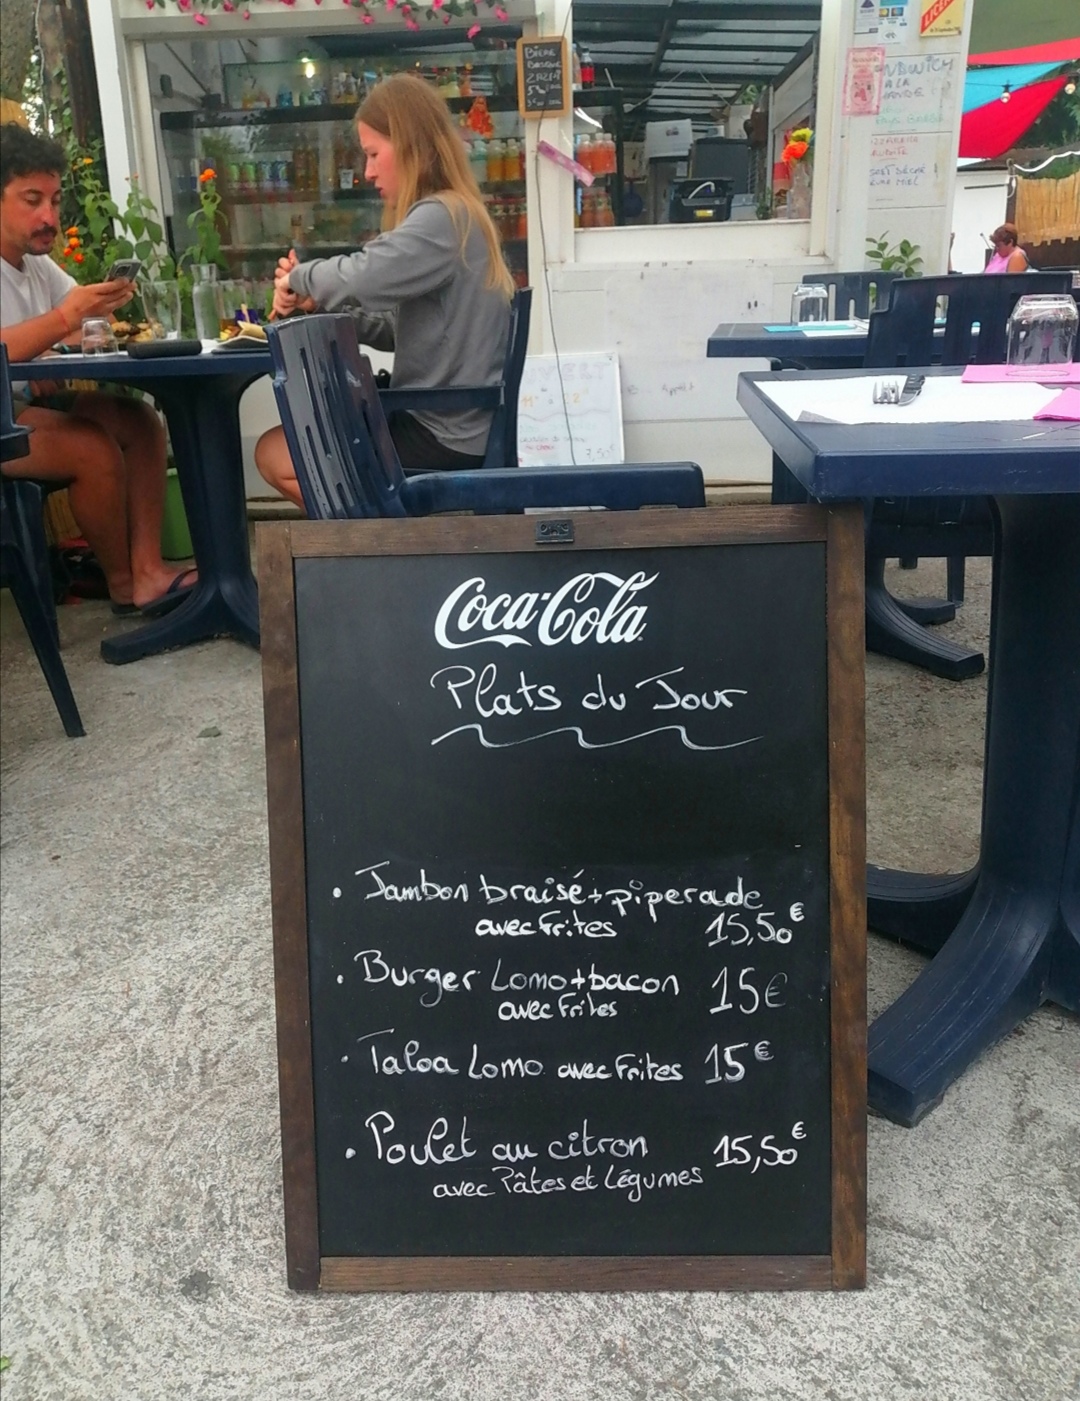 BIÈRE
BASQUE
LICENCE
SANDWICH
Coca-Cola
Plats du Jour
• Jambon braisé + piperade
avec Frites 15,50€
• Burger Lomo + bacon 15€
avec Frites
• Taloa Lomo avec Frites 15€
• Poulet au citron 15,50€
avec Pâtes et Légumes
7,50€